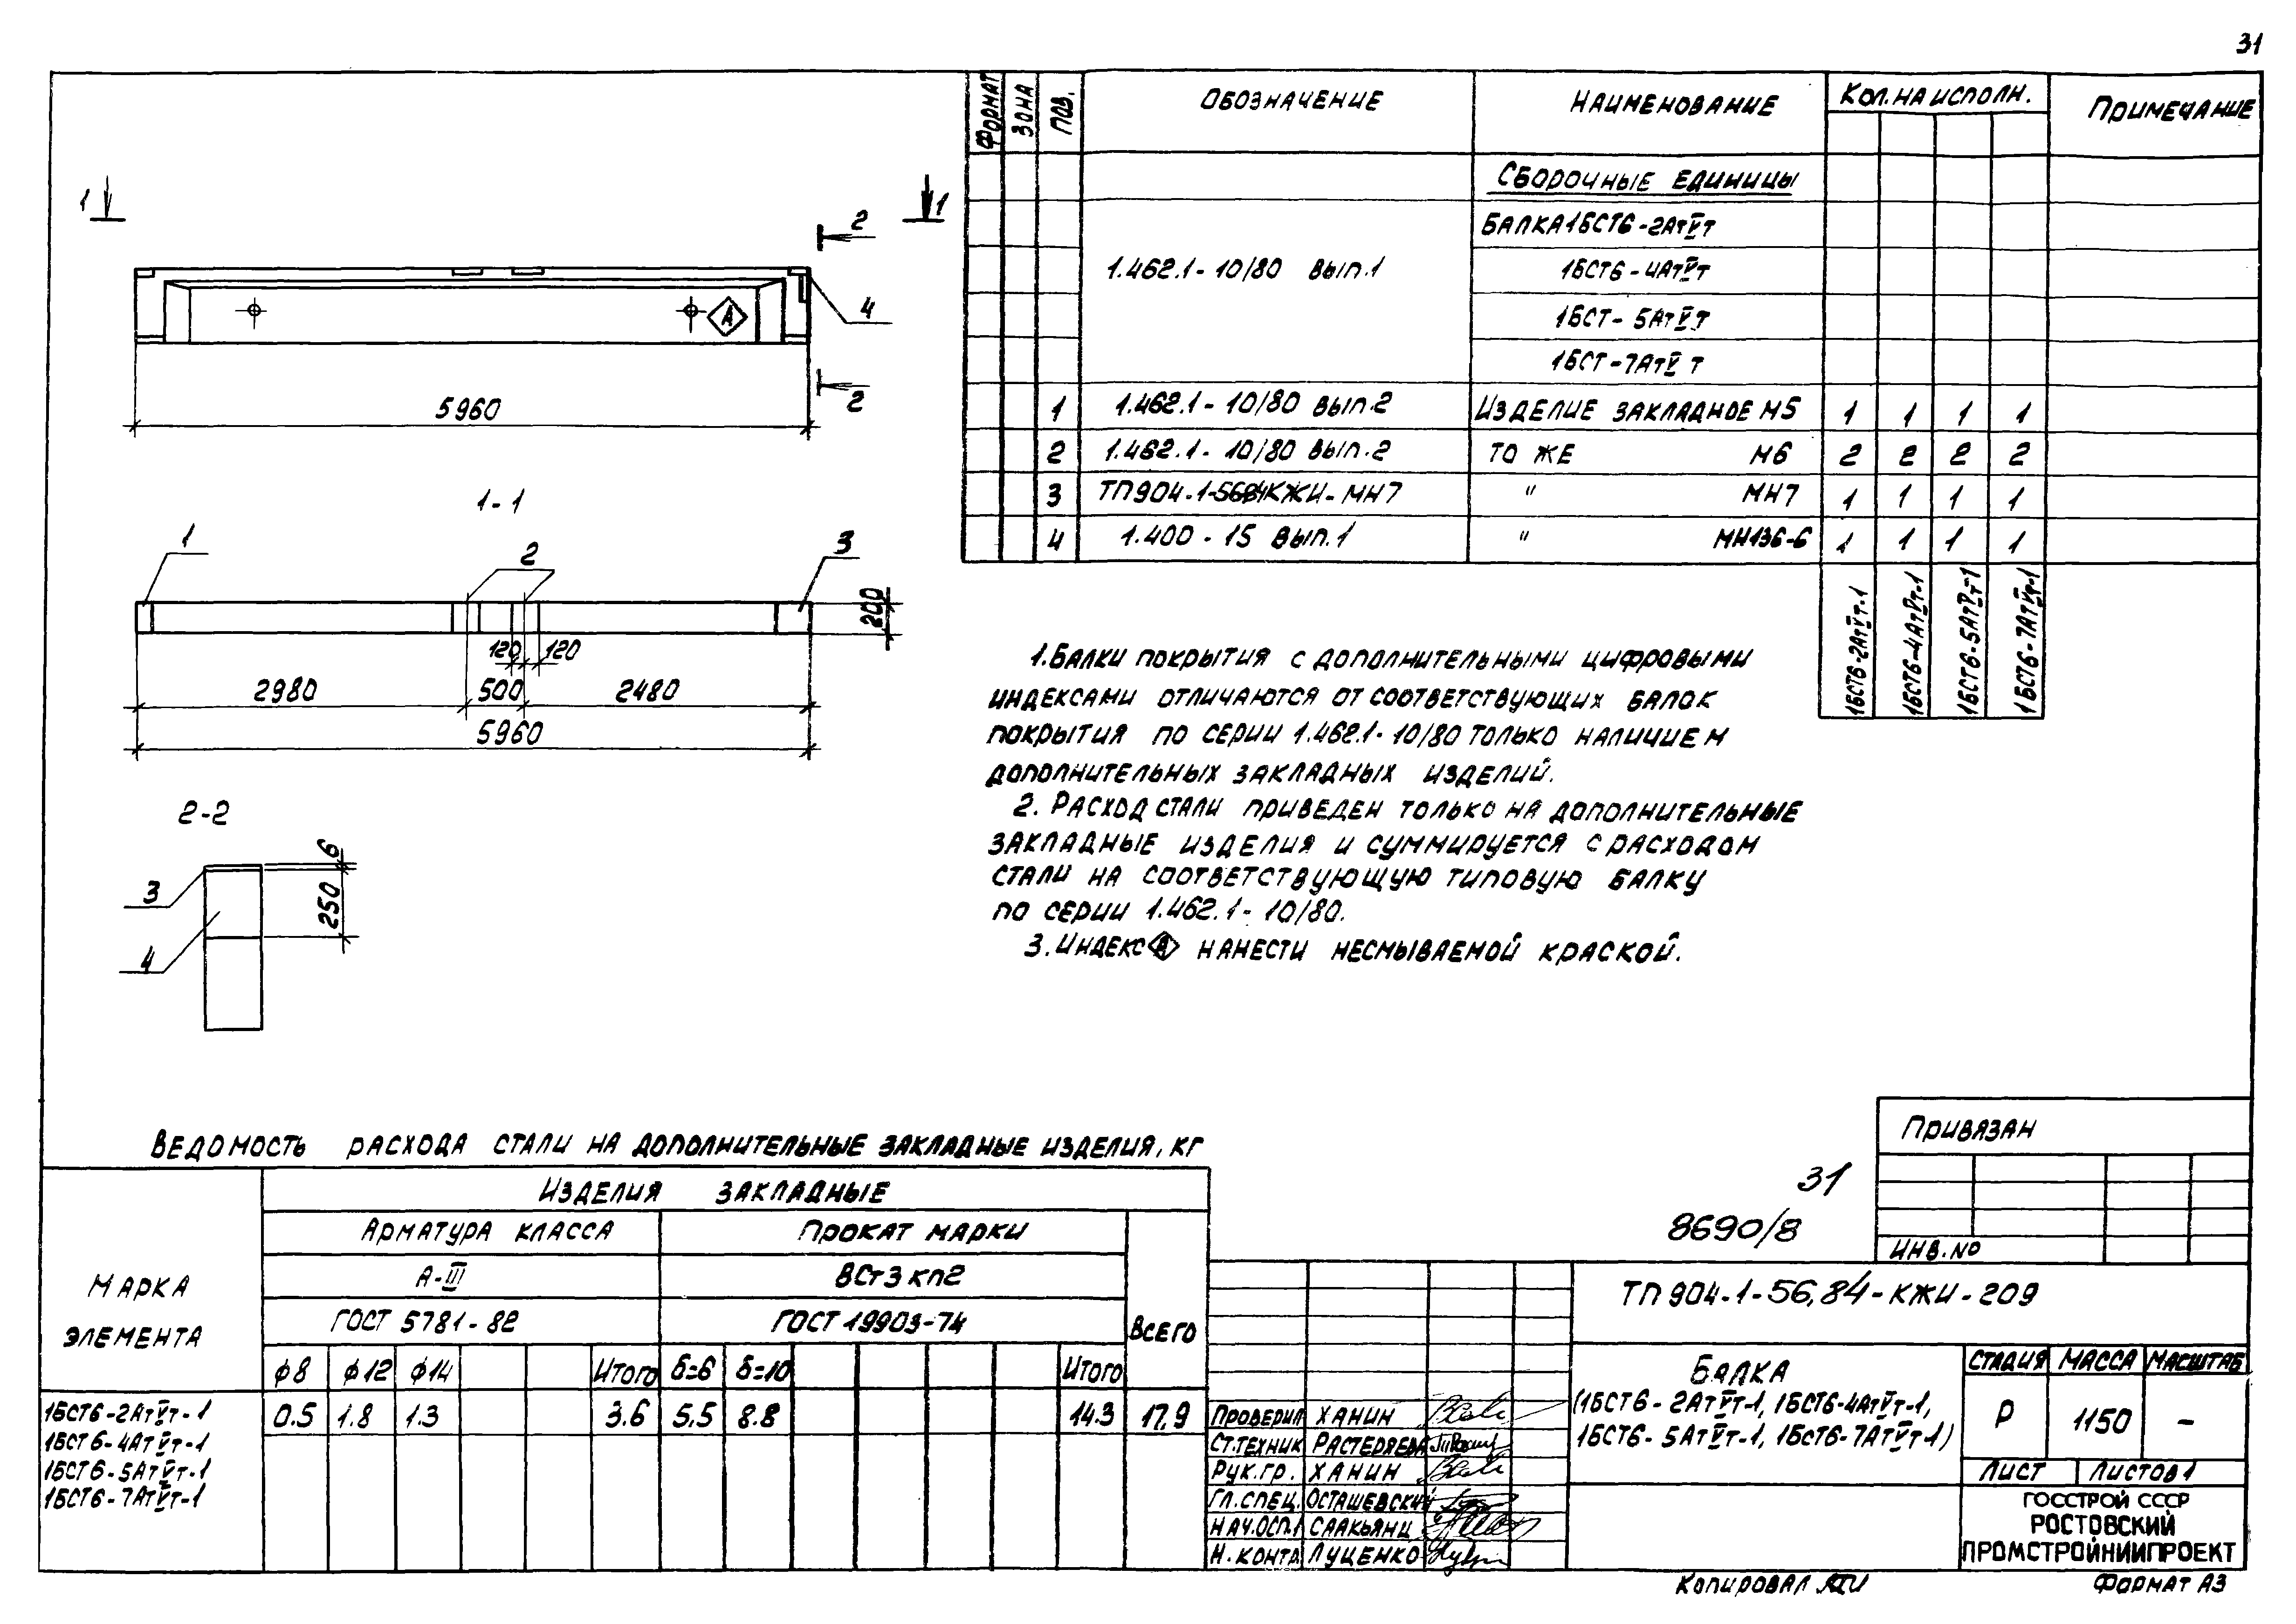 31
1
1
2
4
А
5960
2
1-1
1
2
3
200
120
120
2980
500
2480
5960
2-2
3
4
6
250
Формат
Зона
Поз.
Обозначение
Наименование
Кол. на исполн.
Примечание
Сборочные единицы
1.462.1-10/80 вып.1
Балка 1БСТ6-2АтVт
1БСТ6-4АтVт
1БСТ-5АтVт
1БСТ-7АтVт
1 1.462.1-10/80 вып.2 Изделие закладное М5 1 1 1 1
2 1.462.1-10/80 вып.2 то же М6 2 2 2 2
3 ТП904-1-56.84КЖИ-МН7 " МН7 1 1 1 1
4 1.400-15 вып.1 " МН136-6 1 1 1 1
1БСТ6-2АтVт-1
1БСТ6-4АтVт-1
1БСТ6-5АтVт-1
1БСТ6-7АтVт-1
1. Балки покрытия с дополнительными цифровыми
индексами отличаются от соответствующих балок
покрытия по серии 1.462.1-10/80 только наличием
дополнительных закладных изделий.
2. Расход стали приведен только на дополнительные
закладные изделия и суммируется с расходом
стали на соответствующую типовую балку
по серии 1.462.1-10/80.
3. Индекс А нанести несмываемой краской.
Ведомость расхода стали на дополнительные закладные изделия, кг
Марка
элемента
Изделия закладные
Арматура класса
Прокат марки
А-III
ВСт3кп2
ГОСТ 5781-82
ГОСТ 19903-74
Всего
ф8 ф12 ф14 Итого δ=6 δ=10 Итого
1БСТ6-2АтVт-1 0.5 1.8 1.3 3.6 5.5 8.8 14.3 17,9
1БСТ6-4АтVт-1
1БСТ6-5АтVт-1
1БСТ6-7АтVт-1
31
8690/8
Привязан
Инв.№
ТП 904-1-56.84-КЖИ-209
Балка
(1БСТ6-2АтVт-1, 1БСТ6-4АтVт-1,
1БСТ6-5АтVт-1, 1БСТ6-7АтVт-1)
Стадия Масса Масштаб
Р 1150 -
Лист Листов 1
Проверил Ханин
Ст.техник Растеряева
Рук.гр. Ханин
Гл.спец. Осташевский
Нач.ОСП-1 Саакьянц
Н.контр Луценко
ГОССТРОЙ СССР
РОСТОВСКИЙ
ПРОМСТРОЙНИИПРОЕКТ
Копировал
Формат А3